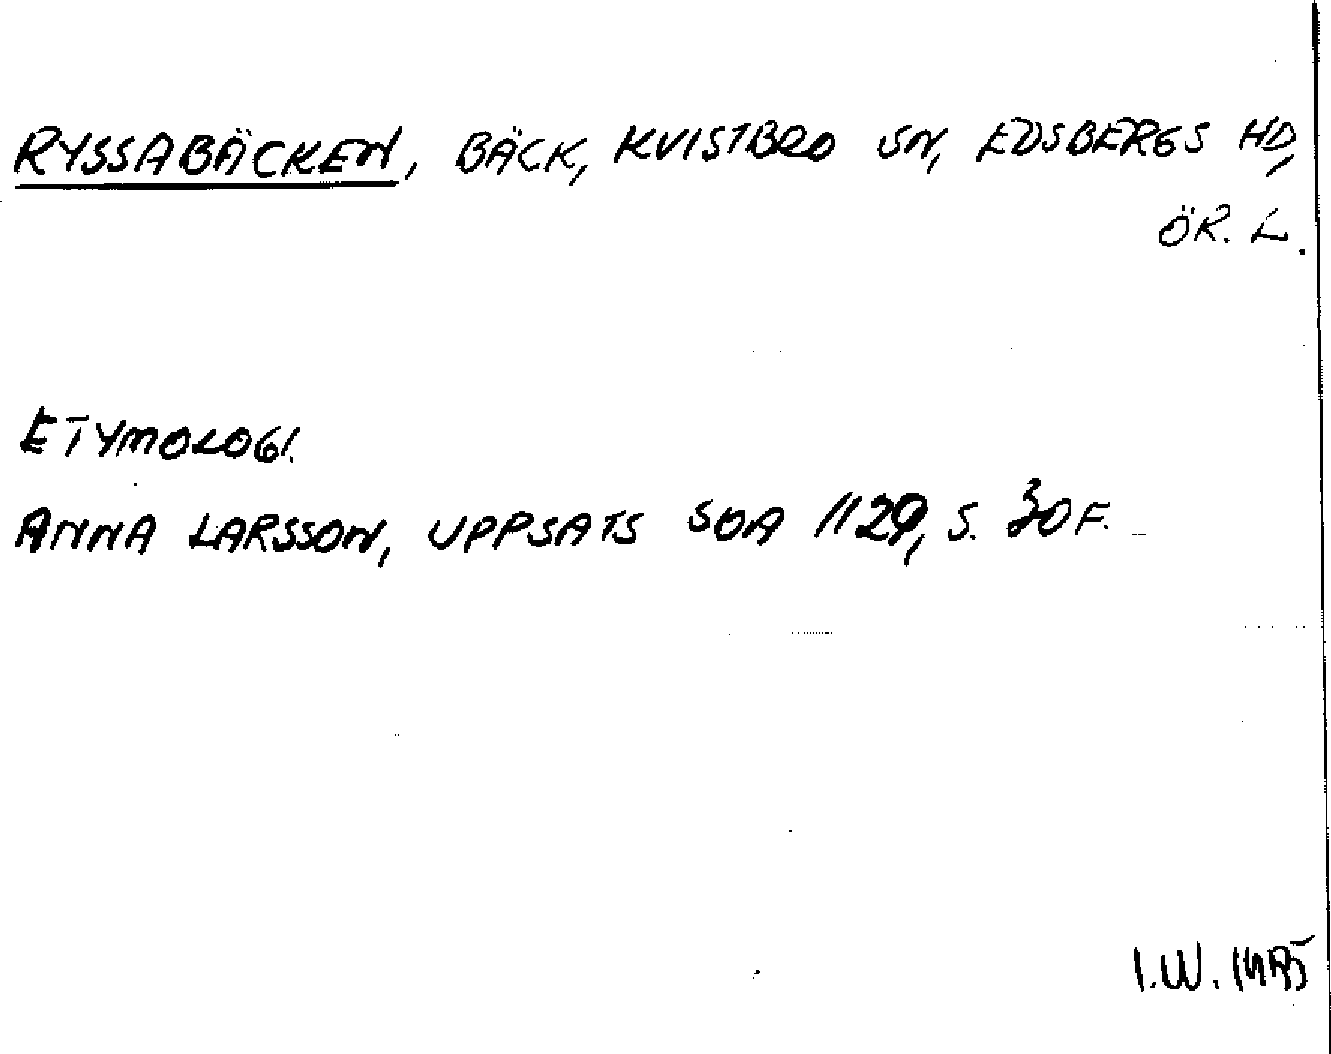 RYSSABÄCKEN, BÄCK, KVISTBRO SN, EDSBERGS HD,
ÖR. L.
ETYMOLOGI.
ANNA LARSSON, UPPSATS SOA 1129, S. 30 F.
I.W.